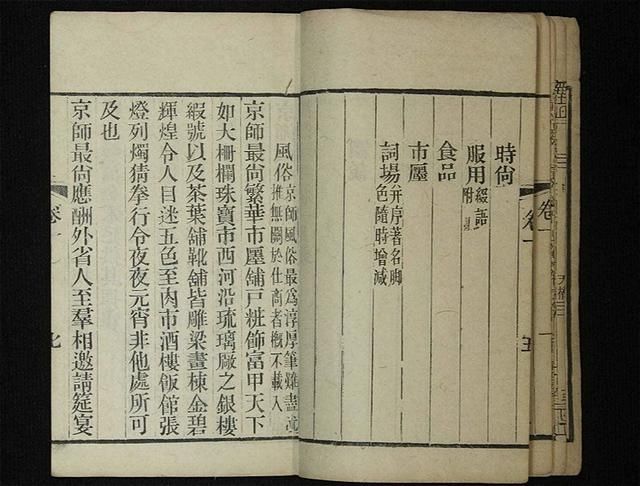 時尚
服用綴語附
食品
市廛
詞場弁序著名脚色隨時增減
卷一
五
風俗京師風俗最爲淳厚筆難盡述推無關於仕商者槪不載入
京師最尙繁華市廛舖戶粧飾富甲天下
如大柵欄珠寶市西河沿琉璃廠之銀樓
緞號以及茶葉舖靴舖皆雕梁畫棟金碧
輝煌令人目迷五色至肉市酒樓飯館張
燈列燭猜拳行令夜夜元宵非他處所可
及也
京師最尙應酬外省人至羣相邀請筵宴